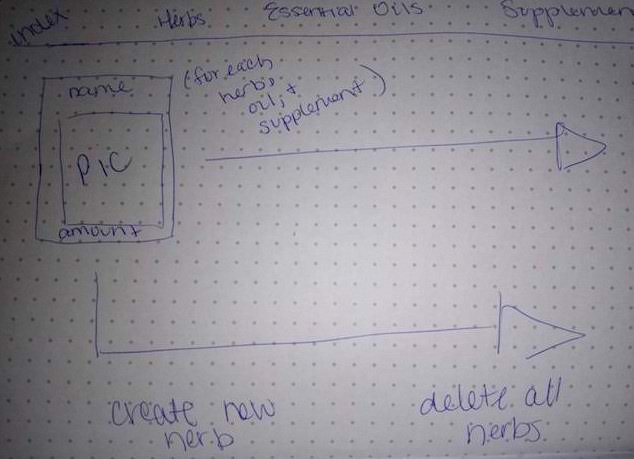 index Herbs Essential Oils Supplemen
name
(for each
herb,
oil, +
supplement)
PIC
amount
create new
herb
delete all
herbs